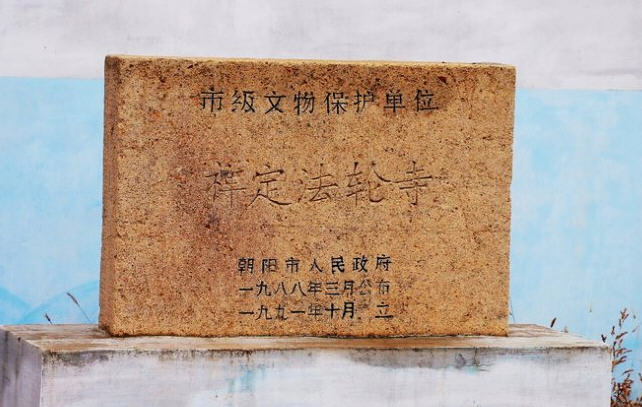 市级文物保护单位
祥定法轮寺
朝阳市人民政府
一九八八年三月公布
一九九一年十月 立